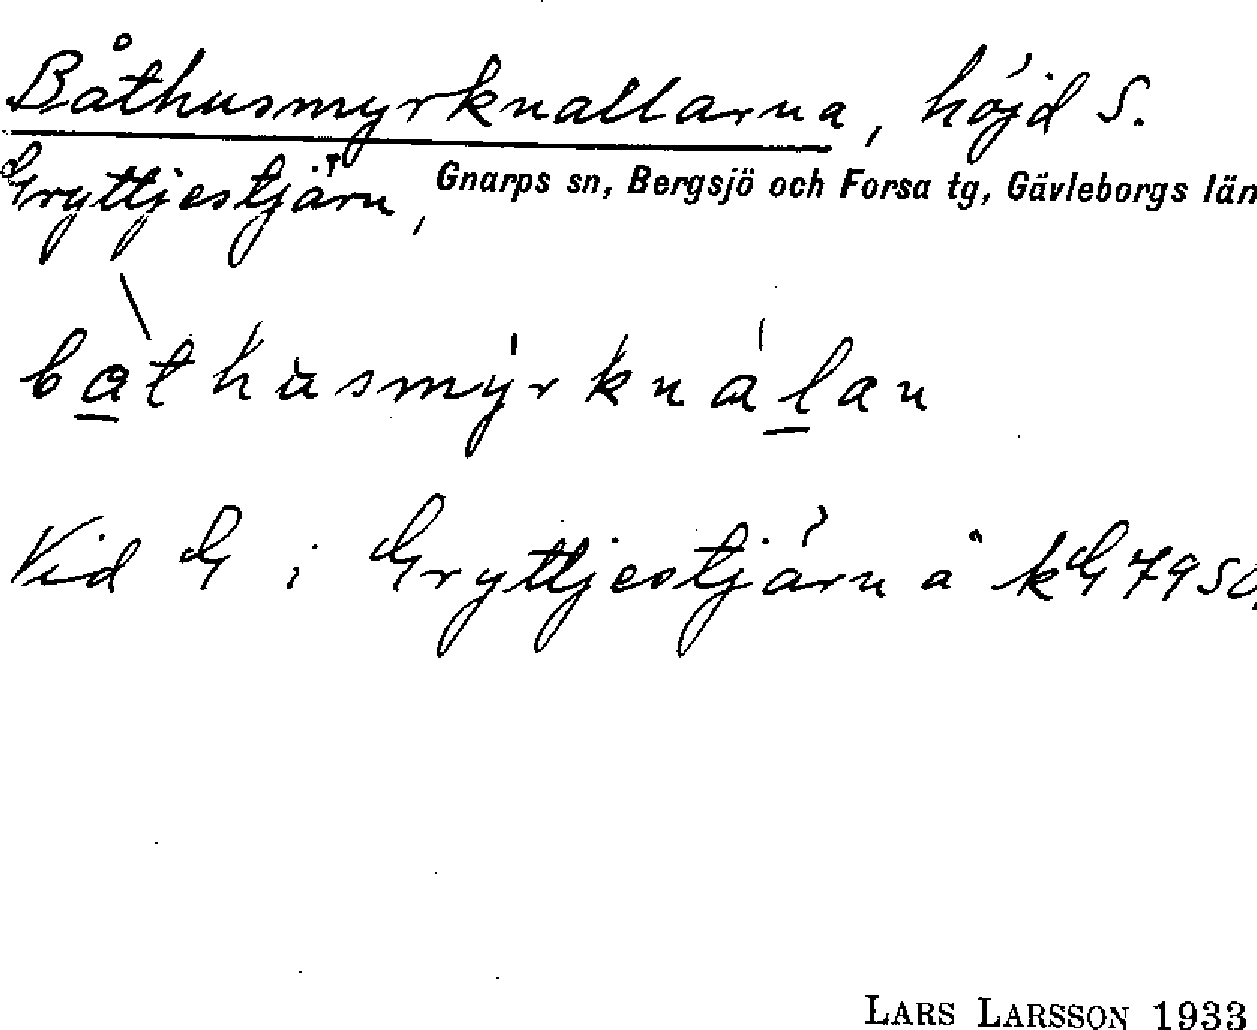 Båthusmyrknallarna, höjd S.
Gryttjestjärn, Gnarps sn, Bergsjö och Forsa tg, Gävleborgs län
Vid G i Gryttjestjärn å kG 7950.
LARS LARSSON 1933